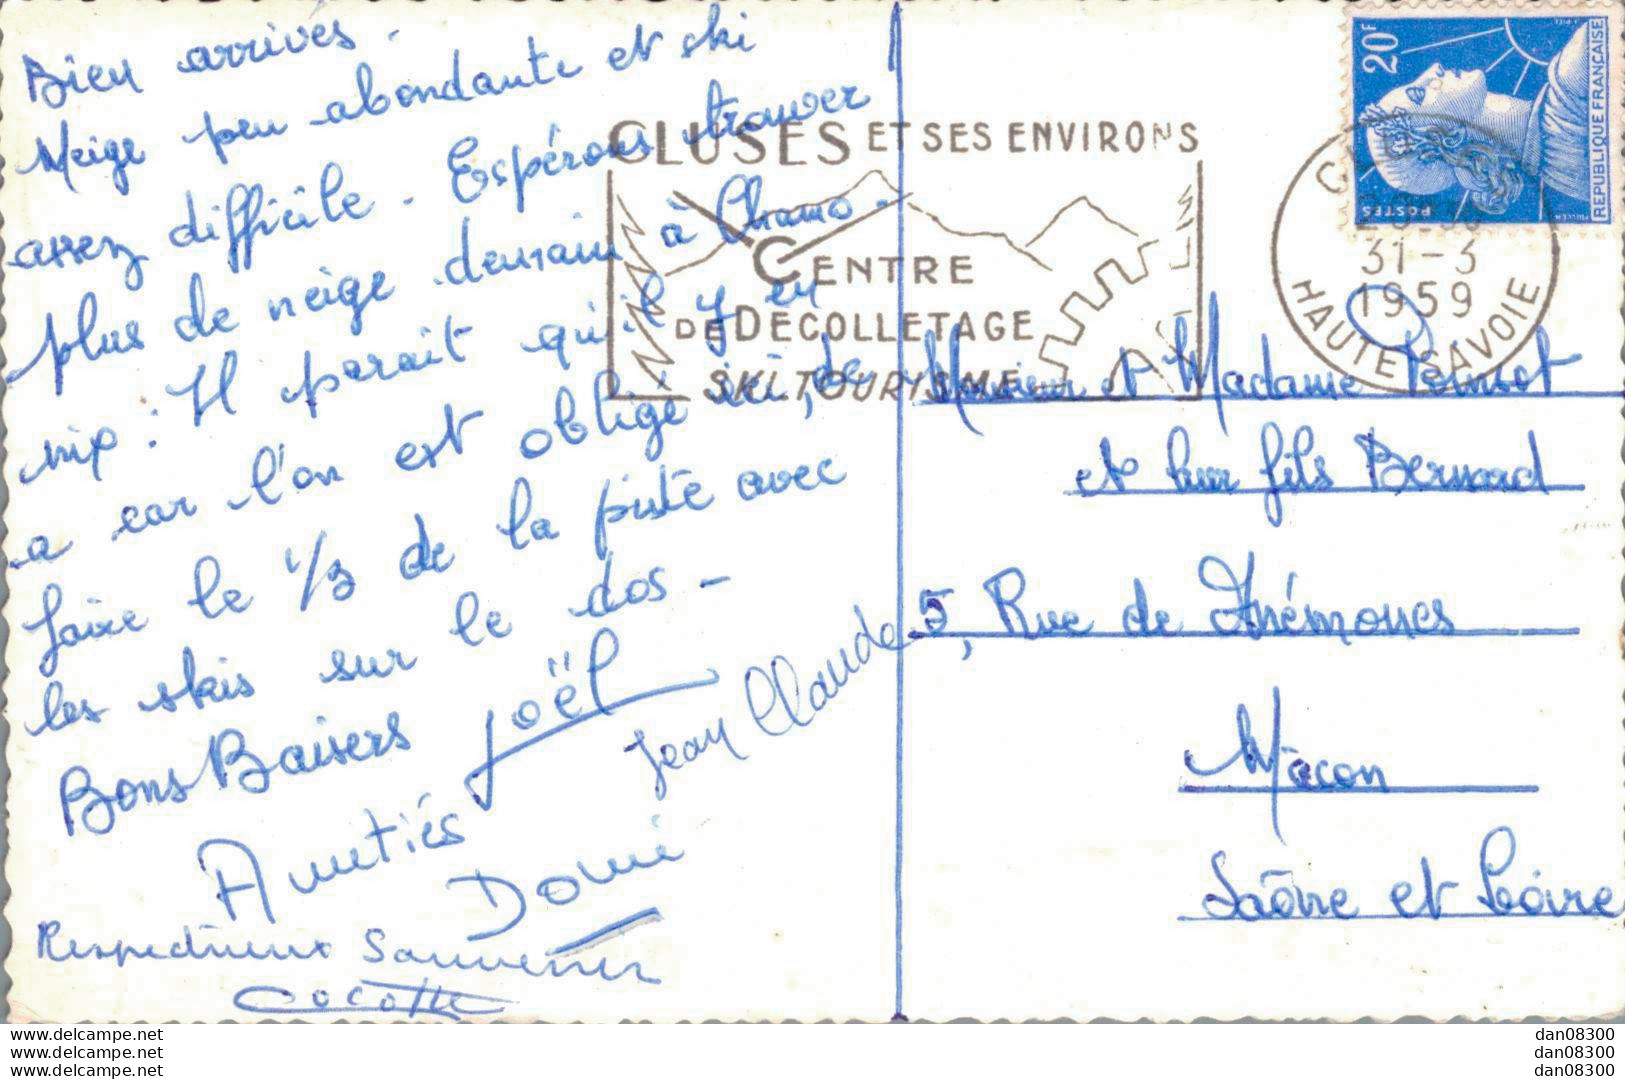 Bien arrivés.
Neige peu abondante et ski
assez difficile. Espérons trouver
plus de neige demain à Chamo-
nix : Il parait qu'il y en
a car l'on est obligé ici, de
faire le 1/3 de la piste avec
les skis sur le dos -
Bons Baisers Joël
Jean Claude
Amitiés
Domi
Respectueux Souvenir
Cocotte
CLUSES ET SES ENVIRONS
CENTRE
DE DECOLLETAGE
SKI TOURISME
20F
REPUBLIQUE FRANÇAISE
POSTES
31-3
1959
HAUTE SAVOIE
Monsieur et Madame
et leur fils Bernard
5, Rue de Anémones
Mâcon
Saône et Loire
www.delcampe.net
www.delcampe.net
www.delcampe.net
dan08300
dan08300
dan08300